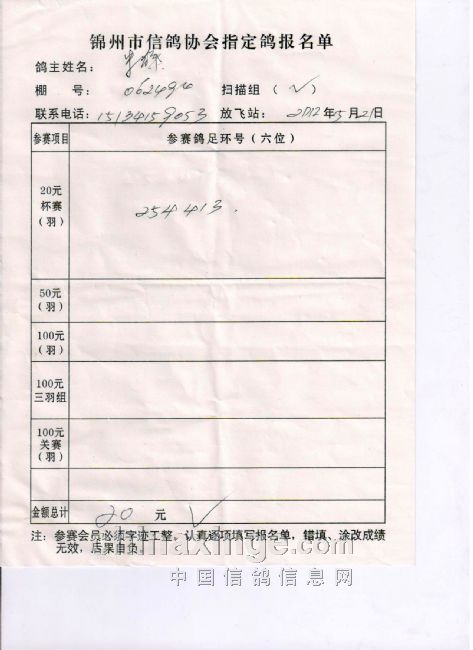 锦州市信鸽协会指定鸽报名单
鸽主姓名：
棚 号： 062494 扫描组（✓）
联系电话：15134159053 放飞站： 2012年5月21日
参赛项目 参赛鸽足环号（六位）
20元
杯赛
（羽）
254413.
50元
（羽）
100元
（羽）
100元
三羽组
100元
关赛
（羽）
金额总计 20 元 ✓
注：参赛会员必须字迹工整。认真逐项填写报名单，错填、涂改成绩
无效，后果自负。
chinaxinge.com
中国信鸽信息网